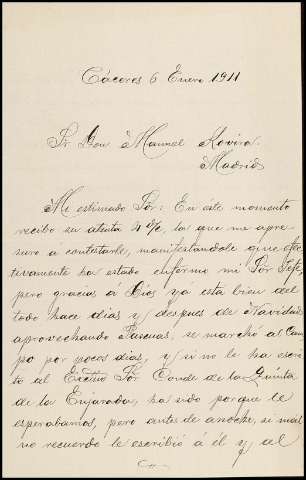 Cáceres 6 Enero 1911
Sr Don Manuel Rovira.
Madrid
Mi estimado Sor: En este momento
recibo su atenta 4 %c, la que me apre-
suro á contestarle, manifestandole que efec-
tivamente ha estado enfermo mi Sor Jefe,
pero gracias á Dios yá esta bien del
todo hace dias y despues de Navidad
aprovechando Pascuas, se marchó al Cam-
po por pocos dias, y si no le ha escri-
to al Excmo Sor Conde de la Quinta
de la Enjarada, ha sido porque le
esperabamos, pero antes de anoche, si mal
no recuerdo le escribió á él y al